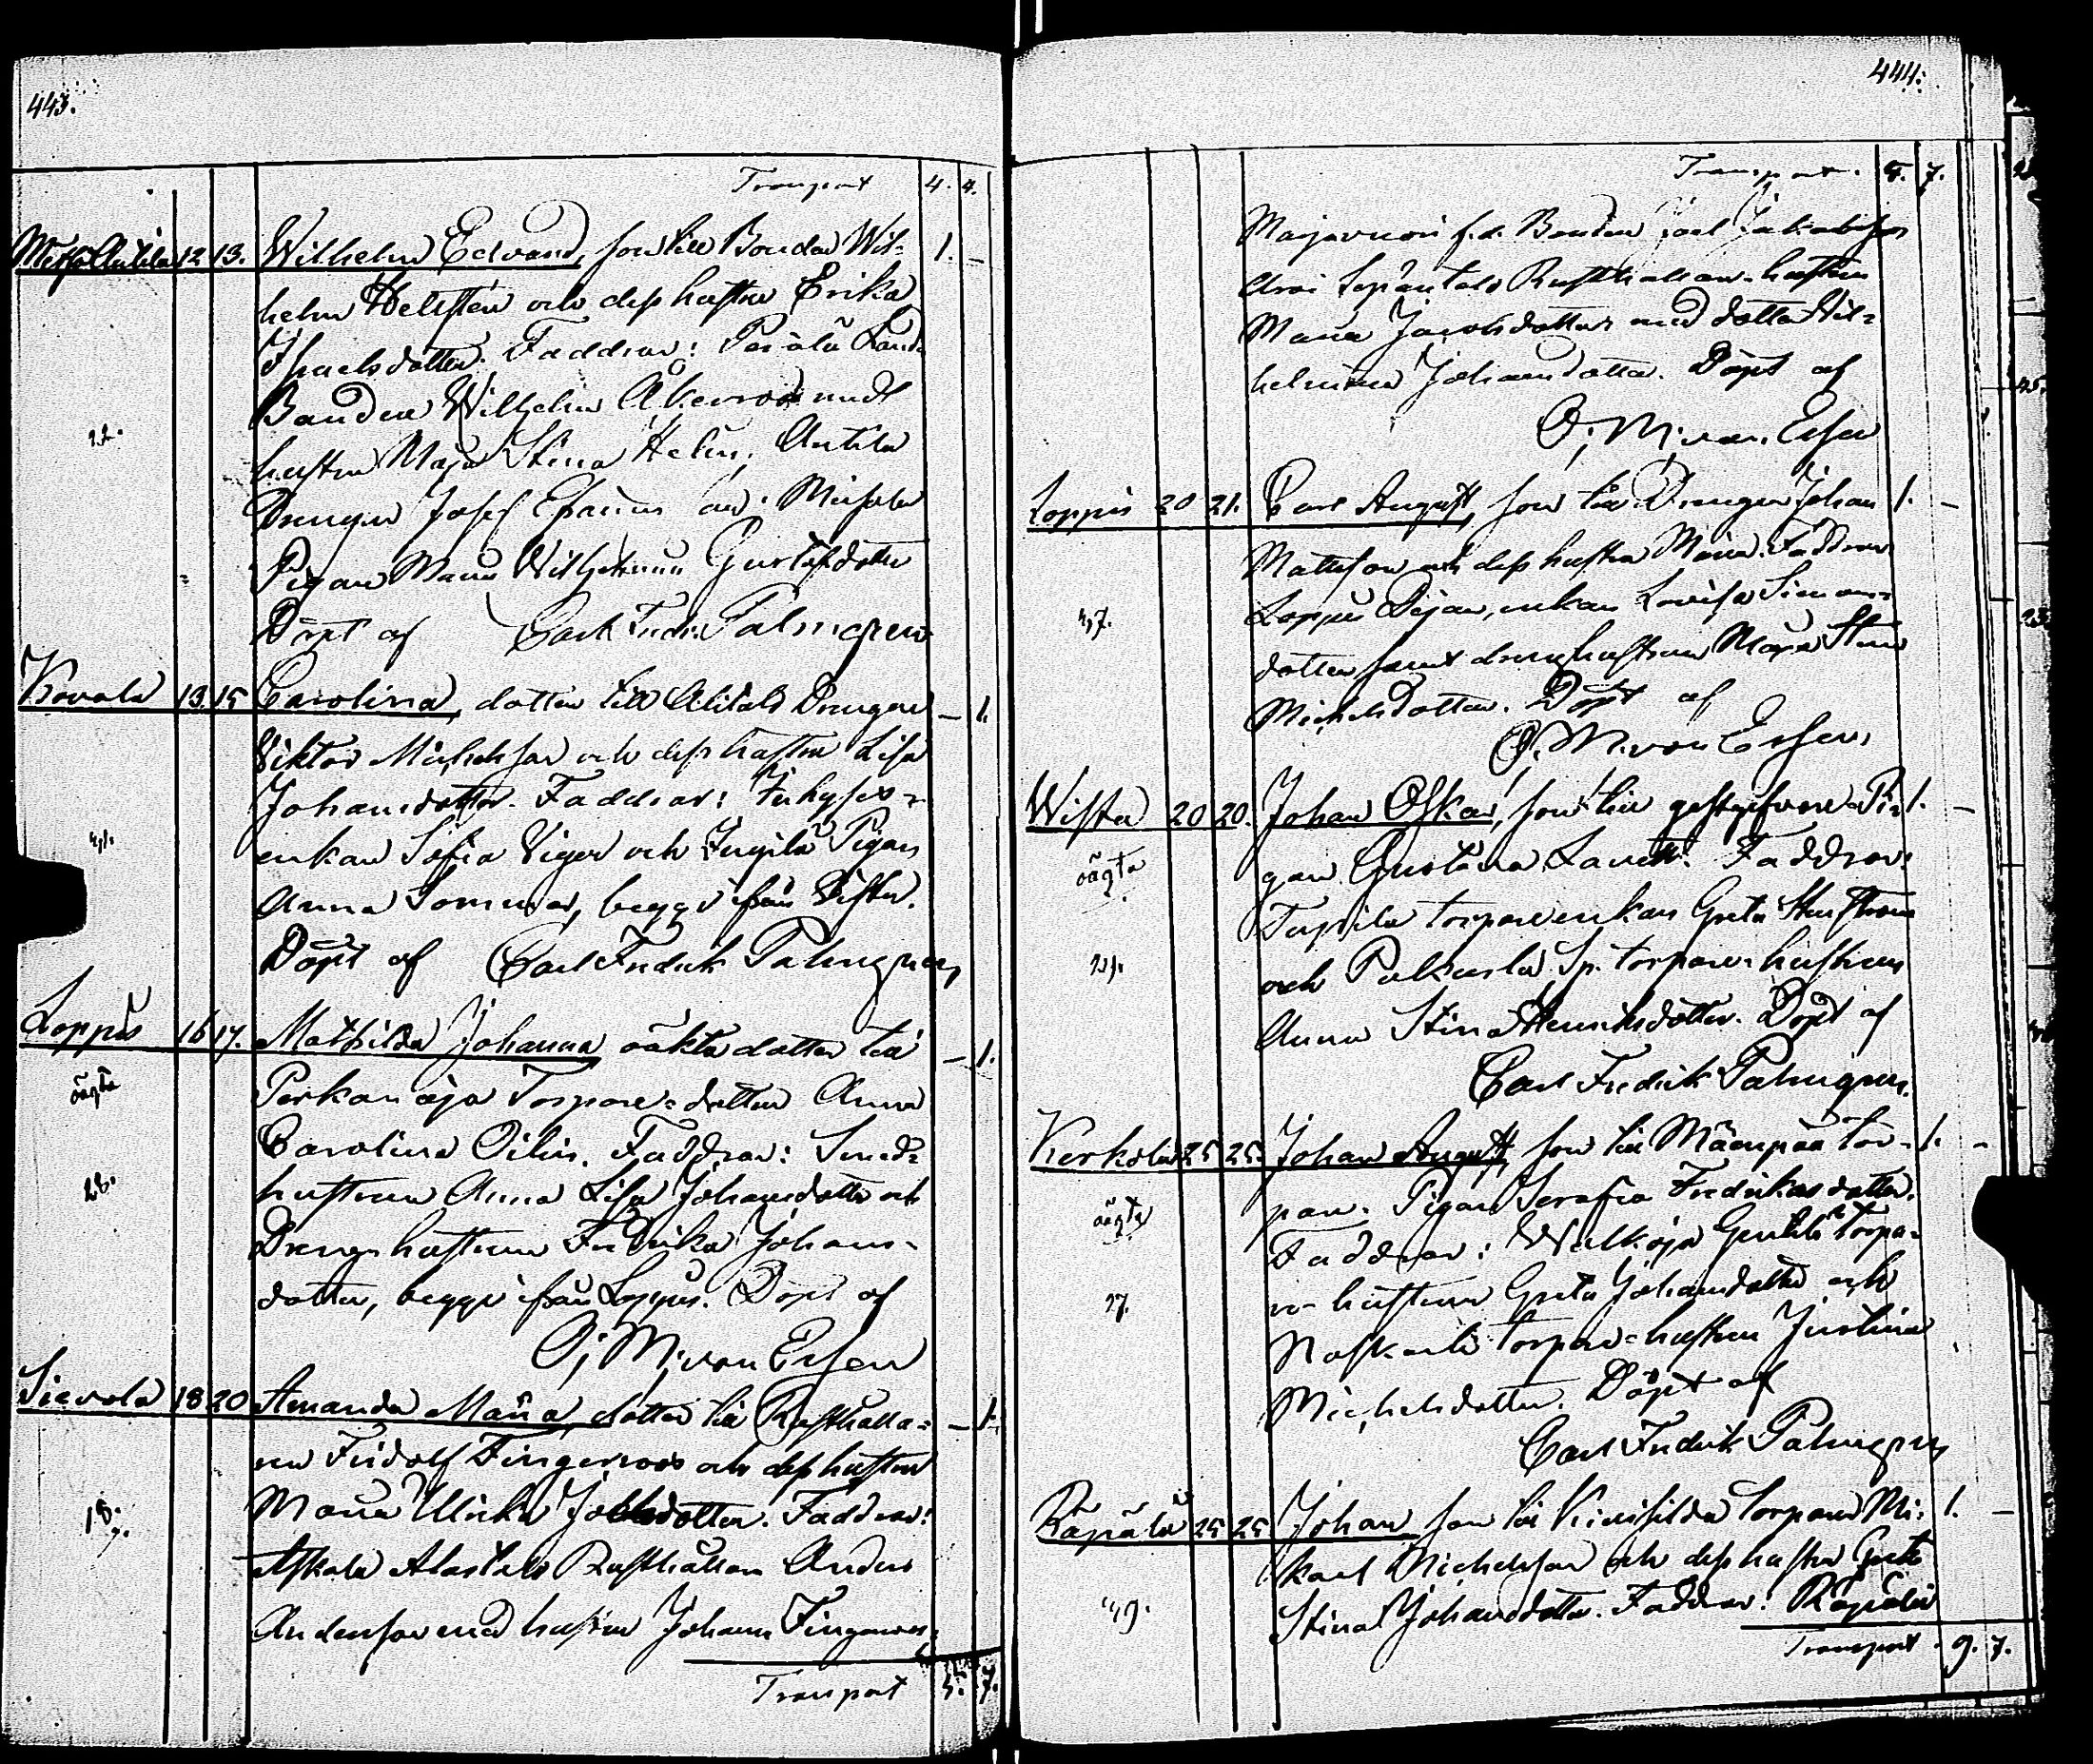 443.
Transport 4. 4.
12 13. Wilhelm Edvard, son till Bonden Wil- 1. –
helm Hellsten och dess hustru Erika
dotter. Faddrar:
Bonden Wilhelm Åkerroos med
22.
hustru Maja Stina Helin, Anttila
Drengen Josef
Pigan Maria Wilhelmina Gustafsdotter
Döpt af Carl Fredr. Palmgren
Kovala 13 15 Carolina, dotter till Alitalo Drengen – 1.
Viktor Michelsson och dess hustru Lisa
Johansdotter. Faddrar:
enkan Sofia Viger och Pigan
Anna Sommar, begge från Vista.
Döpt af Carl Fredrik Palmgren
Loppis 16 17. Mathilda Johanna oäkta dotter till – 1.
oägta
Torpare-dotter Anna
Carolina Oilin. Faddrar: Smeds-
28.
hustrun Anna Lisa Johansdotter och
Drengshustrun Fredrika Johans-
dotter, begge från Loppis. Döpt af
O. M. von Essen
Sievola 18 20 Amanda Maria, dotter till Rusthålla- – 1.
ren Fridolf Fingerroos och dess hustru
Maria Ulrika dotter. Faddrar:
18.
Askala Alastalo Rusthållaren Anders
Andersson med hustru Johanna Fingerroos,
Transport 5. 7.
444.
Transport. 5. 7.
f.d. Bonden
Rusthållare-hustrun
Maria Jacobsdotter med dotter Wil-
helmina Johansdotter. Döpt af
O. M. von Essen
Loppis 20 21. Carl August, son till Drengen Johan 1. –
Mattsson och dess hustru Maria. Faddrar:
27.
Loppis enkan Lovisa Simons-
dotter samt drengshustrun Maja Stina
Michelsdotter. Döpt af
O. M. von Essen.
Wista 20 20. Johan Oskar, son till gästgifvare-Pi- 1. –
oägta
gan Gustava Faddrar:
torpareenkan Greta
21.
och Sp. torpare-hustrun
Anna Stina Henriksdotter. Döpt af
Carl Fredrik Palmgren.
Kerkola 25 25. Johan August, son till Mäenpää tor- 1. –
oägta
pare. Pigan Serafia Fredriksdotter.
Faddrar: torpa-
27.
re-hustrun Greta Johansdotter och
torpare-hustrun Justina
Michelsdotter. Döpt af
Carl Fredrik Palmgren
Räpälä 25 25 Johan son till torparen Mi- 1. –
kael Michelsson och dess hustru Greta
29.
Stina Johansdotter. Faddrar: Räpälä
Transport 9. 7.